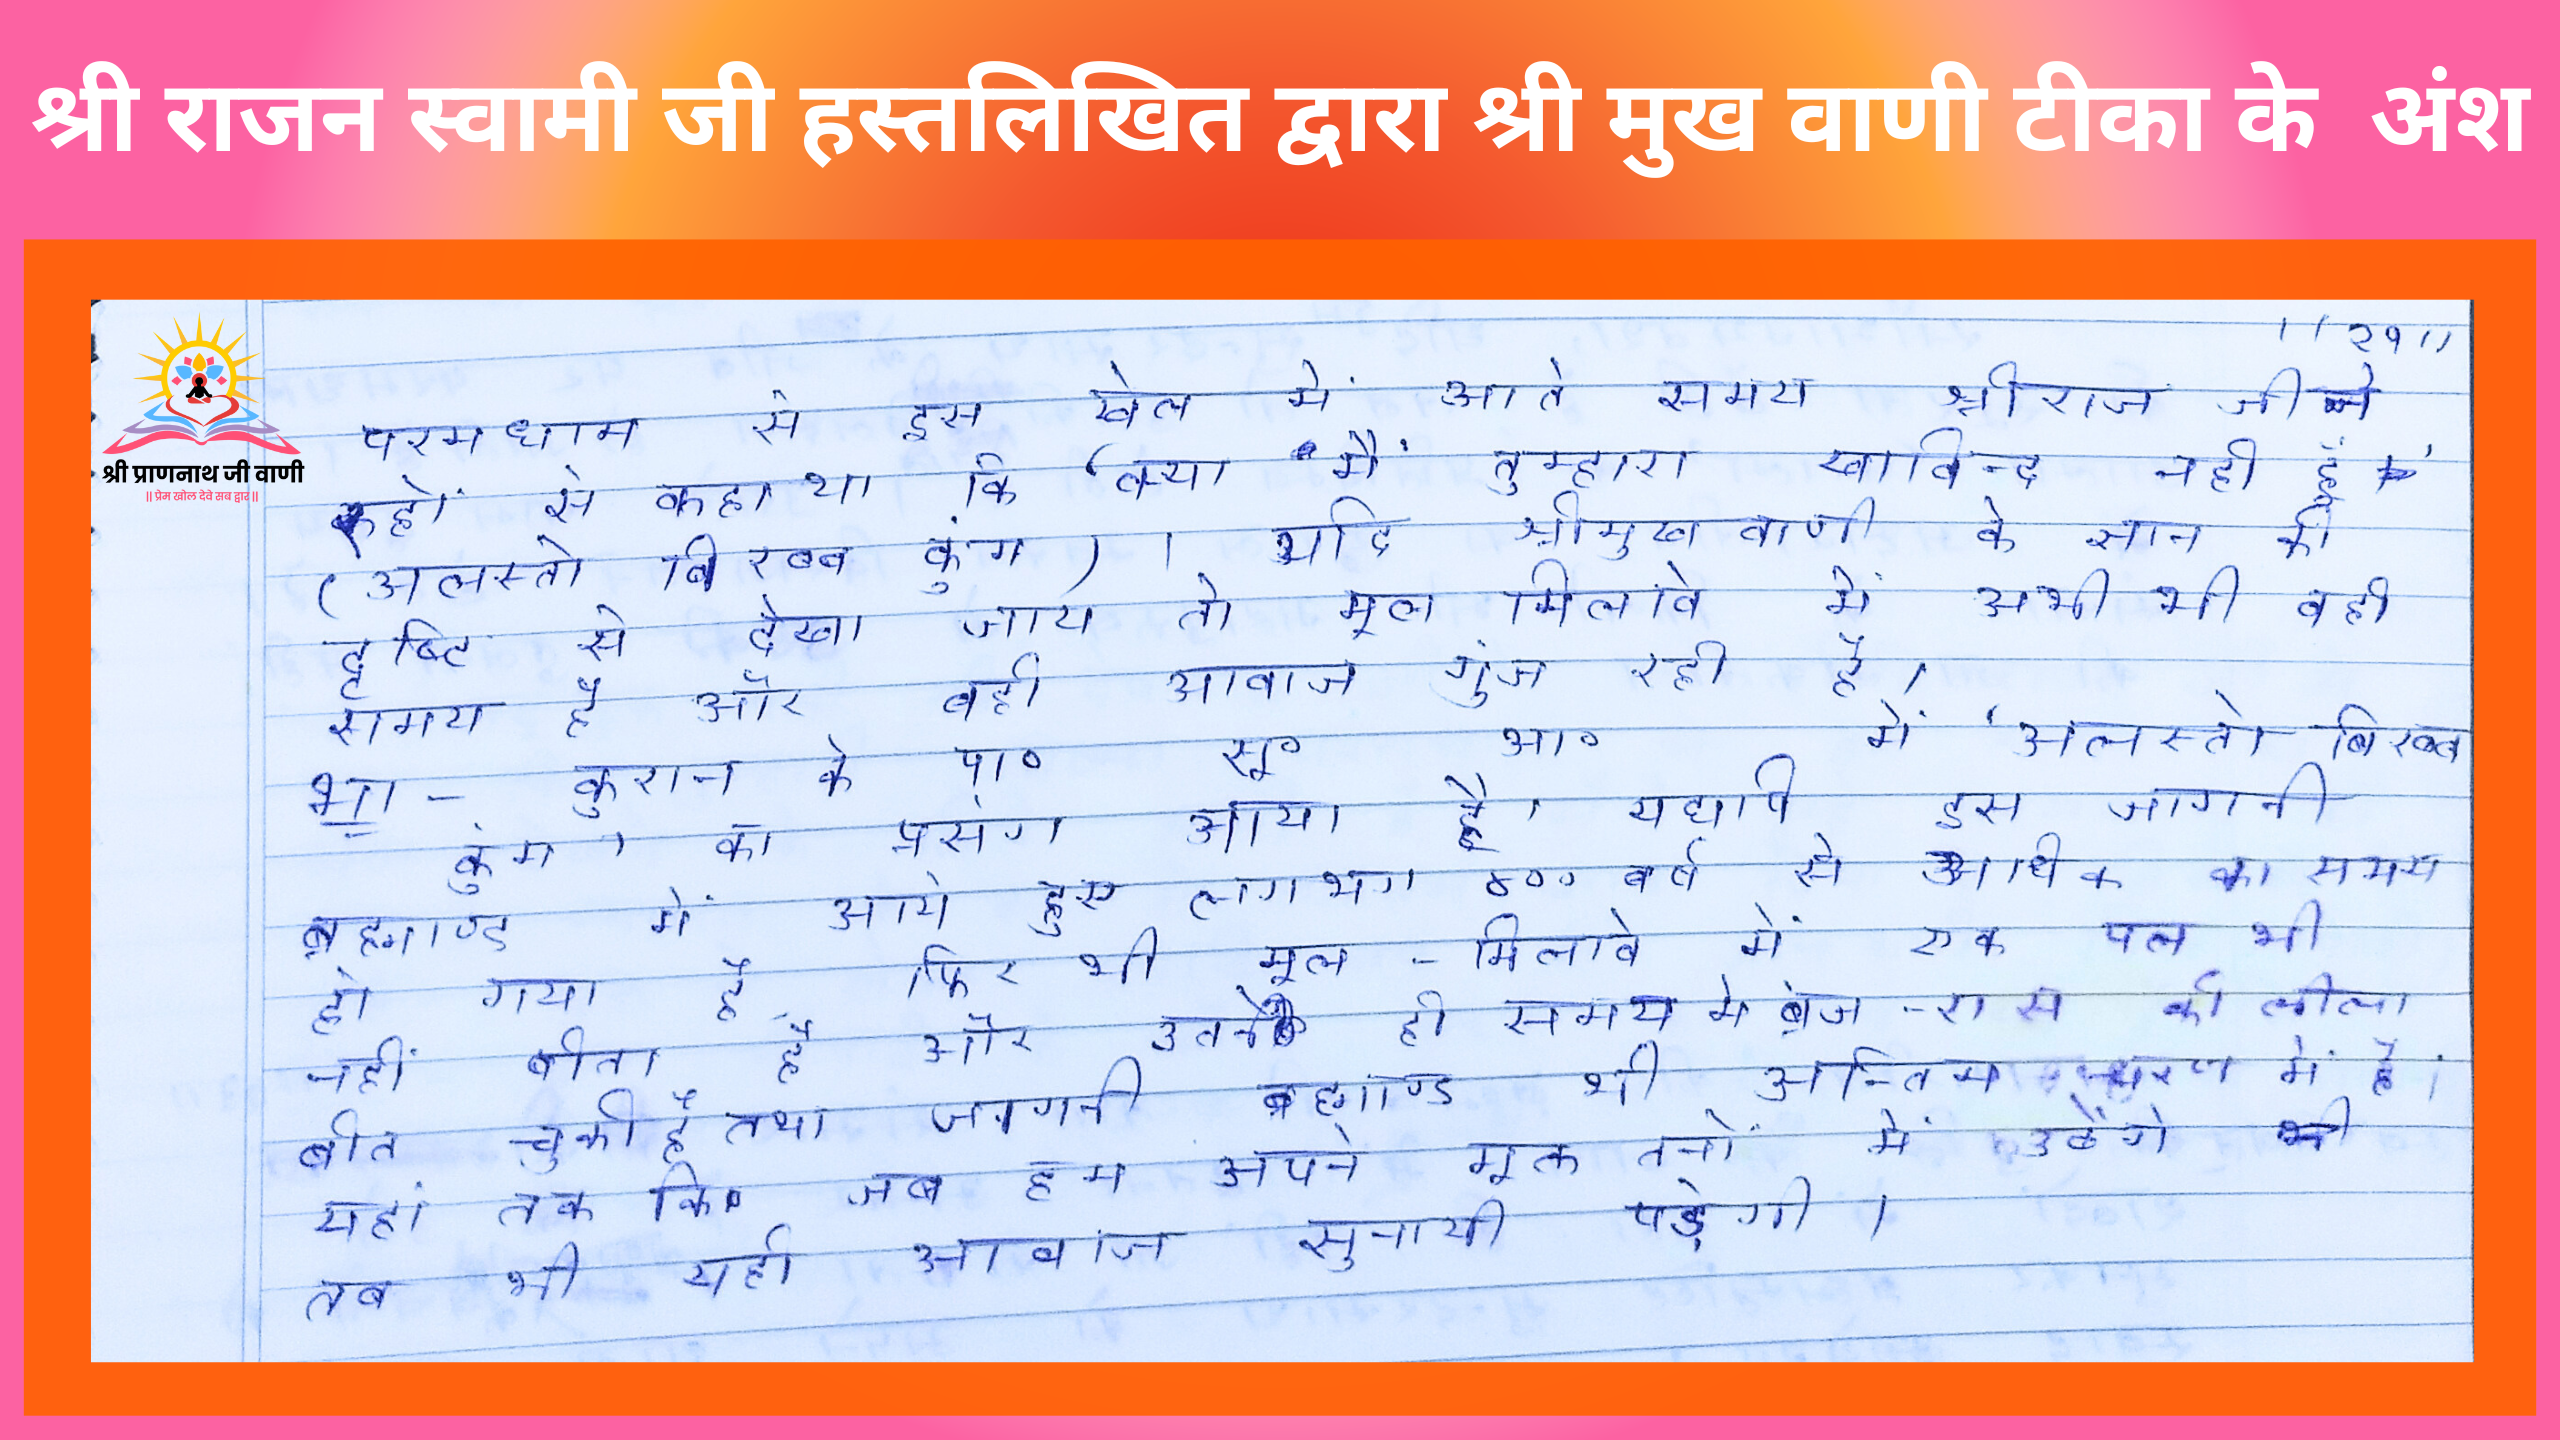 श्री राजन स्वामी जी हस्तलिखित द्वारा श्री मुख वाणी टीका के अंश
श्री प्राणनाथ जी वाणी
॥ प्रेम खोल देवे सब द्वार ॥
॥२१॥
परमधाम से इस खेल में आते समय श्री राज जी ने
रूहों से कहा था कि 'क्या मैं तुम्हारा खाविन्द नही हूँ'
(अलस्तो बिरब्ब कुंम) । यदि श्रीमुखवाणी के ज्ञान की
दृष्टि से देखा जाय तो मूल मिलावे में अभी भी वही
समय है और वही आवाज गुंज रही है ।
भा - कुरान के पा० सू० आ० में 'अलस्तो बिरब्ब
कुंम' का प्रसंग आया है। यद्यपि इस जागनी
ब्रह्माण्ड में आये हुए लगभग ४०० वर्ष से अधिक का समय
हो गया है फिर भी मूल - मिलावे में एक पल भी
नहीं बीता है और उतने ही समय मे ब्रज - रास की लीला
बीत चुकी है तथा जागनी ब्रह्माण्ड भी अन्तिम चरण में है ।
यहां तक कि जब हम अपने मूल तनों में उठेंगे
तब भी यही आवाज सुनायी पड़ेगी ।